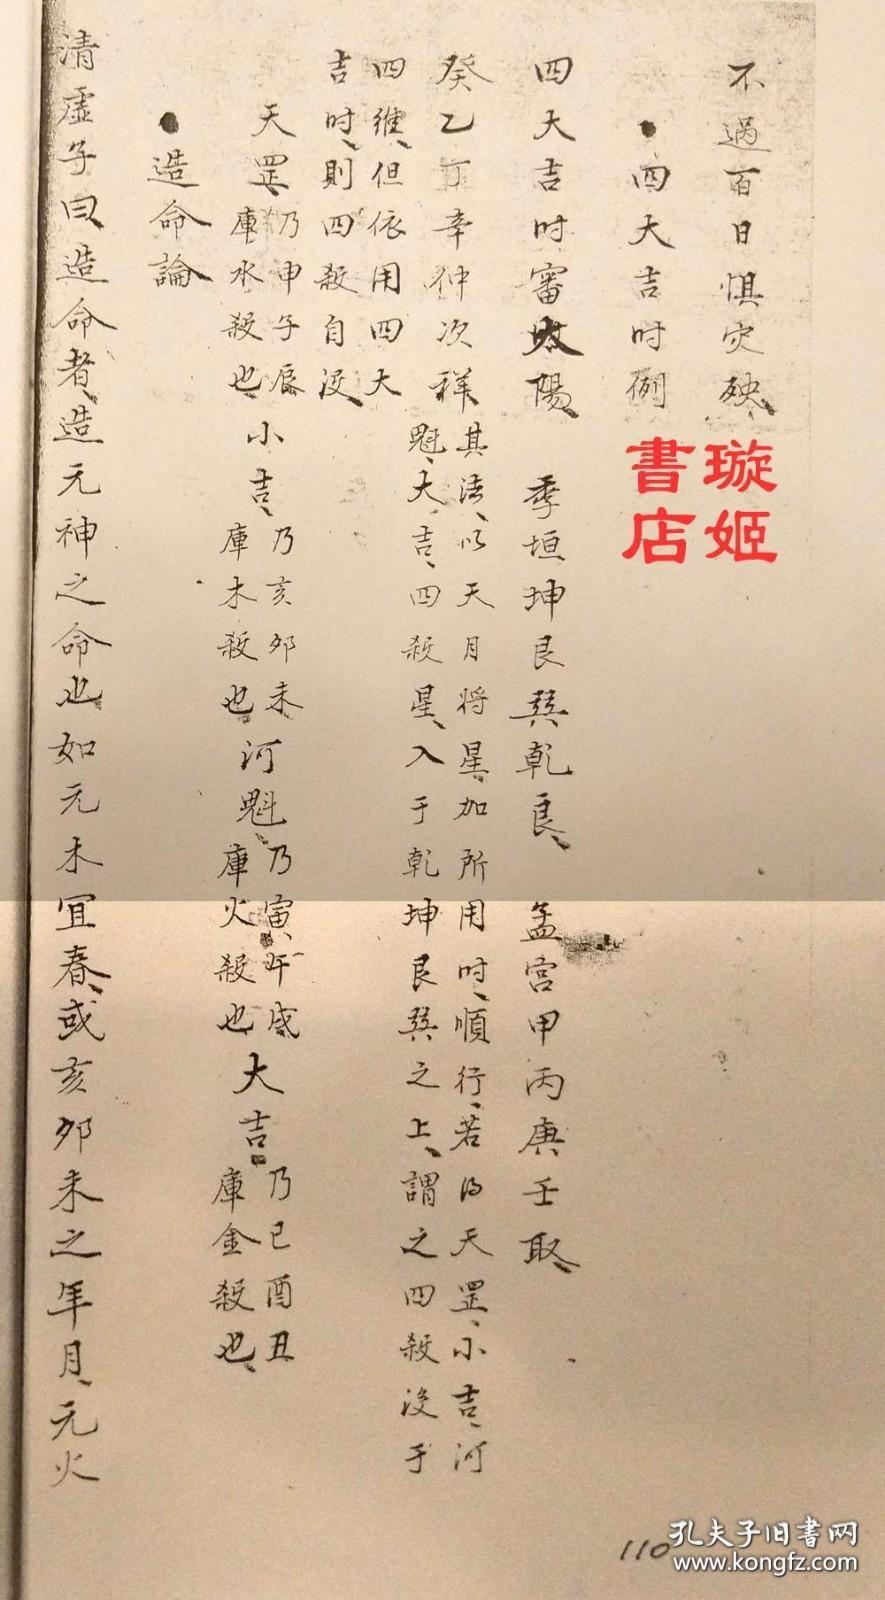 不過百日惧灾殃、
●四大吉时例
四大吉时審太陽、 季垣坤艮巽乾良、 孟宮甲丙庚壬取、
癸乙丁辛仲次祥、其法、以天月将星、加所用时、順行、若得天罡、小吉、河
魁、大吉、四殺星、入于乾坤艮巽之上、謂之四殺没于
四維、但依用四大
吉时、則四殺自没、
天罡、乃申子辰庫水殺也、小吉、乃亥卯未庫木殺也、河魁、乃寅午戌庫火殺也、大吉、乃巳酉丑庫金殺也、
●造命論
清虚子曰、造命者、造元神之命也、如元木宜春、或亥卯未之年月、元火
璇姬
書店
110
孔夫子旧書网
www.kongfz.com